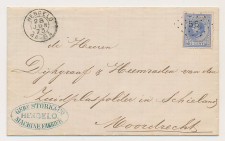 HENGELO
de Heeren
Dijkgraaf & Heemraden van den
Zuidplaspolder in Schieland
Moordrecht
GEBR. STORK & Co
HENGELO
MACHINEFABRIEK